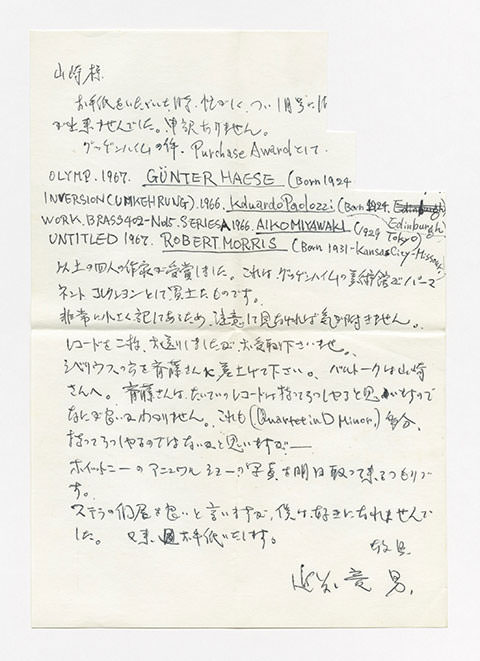 山崎様
お手紙をいただいた時、忙がしく、つい1月号に
出来ませんでした。申訳ありません。
グッゲンハイムの件、Purchase Awardとして
OLYMP. 1967. GÜNTER HAESE (Born 1924
INVERSION (UMKEHRUNG). 1966. Eduardo Paolozzi (Born 1924. Edinburgh)
WORK. BRASS402-No5. SERIES A 1966. AIKO MIYAWAKI (1929 Tokyo)
UNTITLED 1967. ROBERT MORRIS (Born 1931-Kansas City-Missouri
以上の四人の作家が受賞しました。これはグッゲンハイムの美術館がパーマ
ネントコレクションとして買上たものです。
非常に小さく記してあるため、注意して見なければ気が付きません。
レコードを二枚、お送りしましたがお受取り下さいませ。
シベリウスの方を斉藤さんに差上げて下さい。バルトークは山崎
さんへ。斉藤さんは、たいていのレコードは持ってらっしゃると思いますので
なにが良いかわかりません。これも (Quartet in D Minor,) 多分、
持ってらっしゃるのではないかと思いますが——
ホイットニーのアニュワルショーの写真を明日取って来るつもりで
す。
ステラの個展を良いと言いますが、僕は好きになれませんで
した。又、お手紙いたします。
敬具
男.